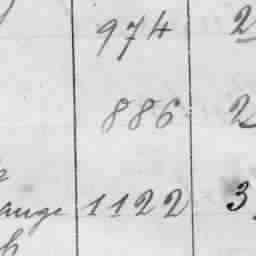 974 2
886 2
ange 1122 3